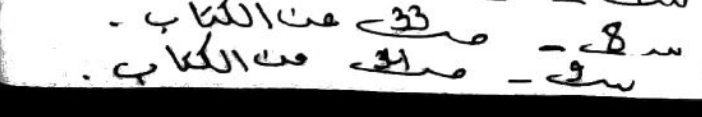 س8 - صـ33 من الكتاب .
س9 - صـ31 من الكتاب .